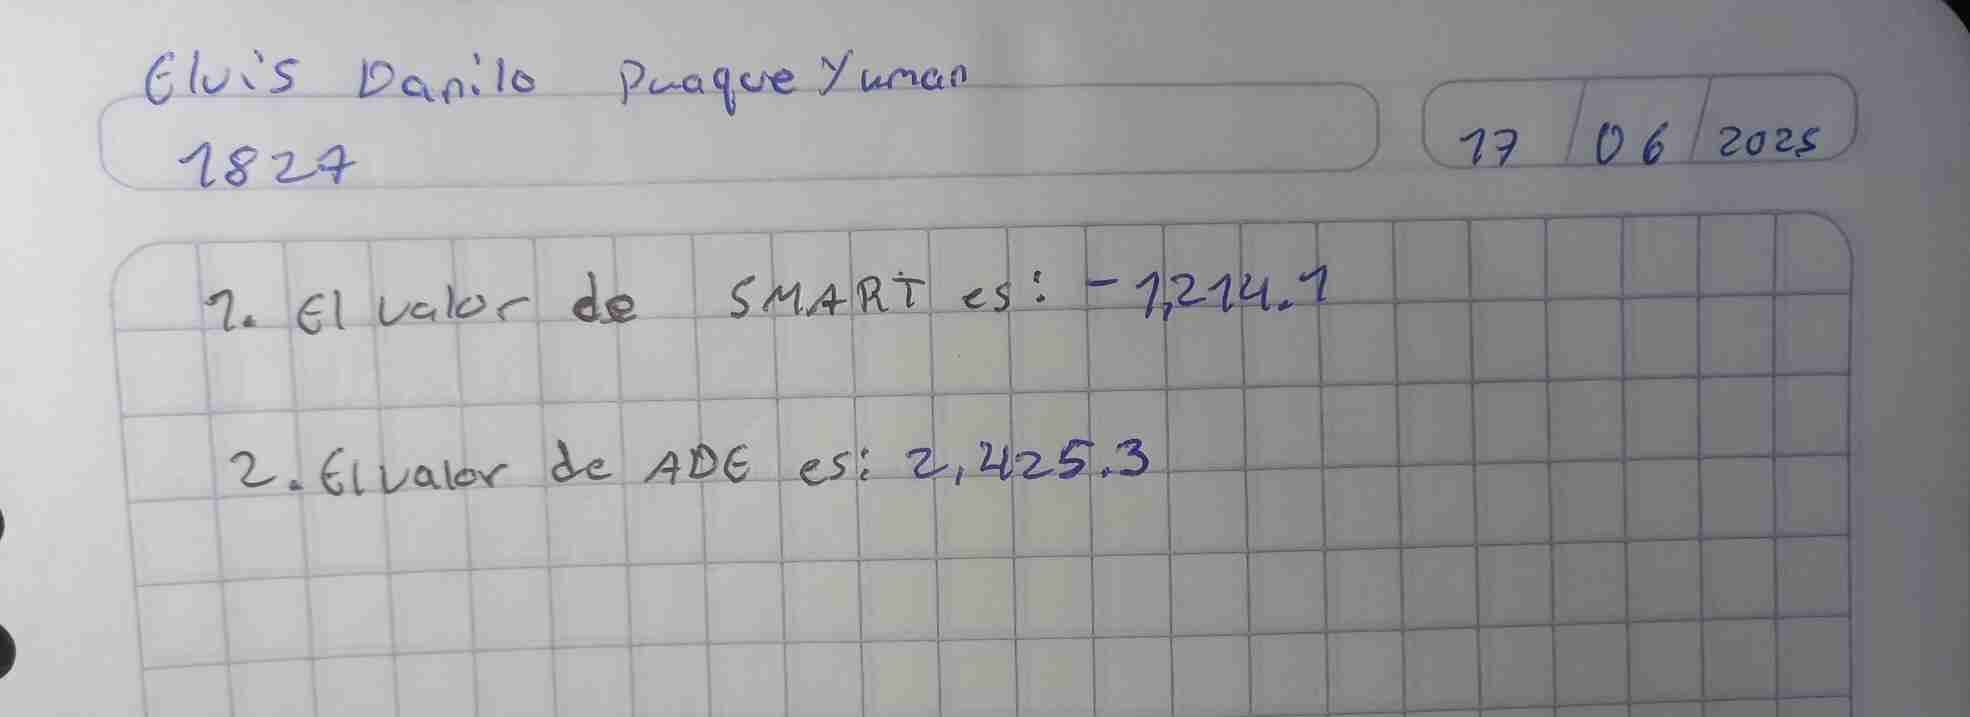 Elvis Danilo Puaque Yuman
1827
17 / 06 / 2025
1. El valor de SMART es: -1,214.1
2. El valor de ADE es: 2,425.3